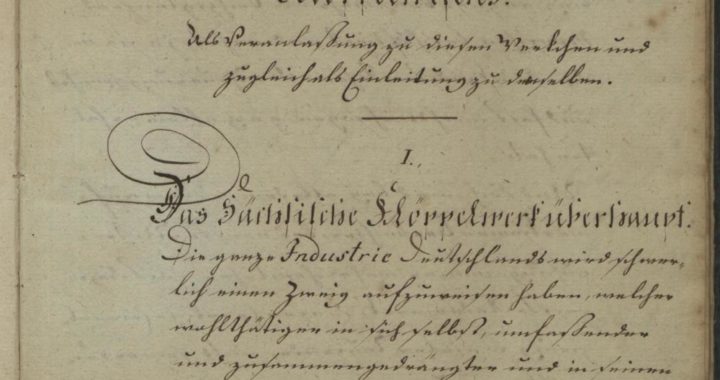 Als Veranlaßung zu diesen Werkchen und
zugleich als Einleitung zu demselben.
I.
Das Sächsische Klöppelwerk überhaupt.
Die ganze Industrie Deutschlands wird schwer-
lich einen Zweig aufzuweisen haben, welcher
wohlthätiger in sich selbst, umfaßender
und zusammengedrängter und in seinen